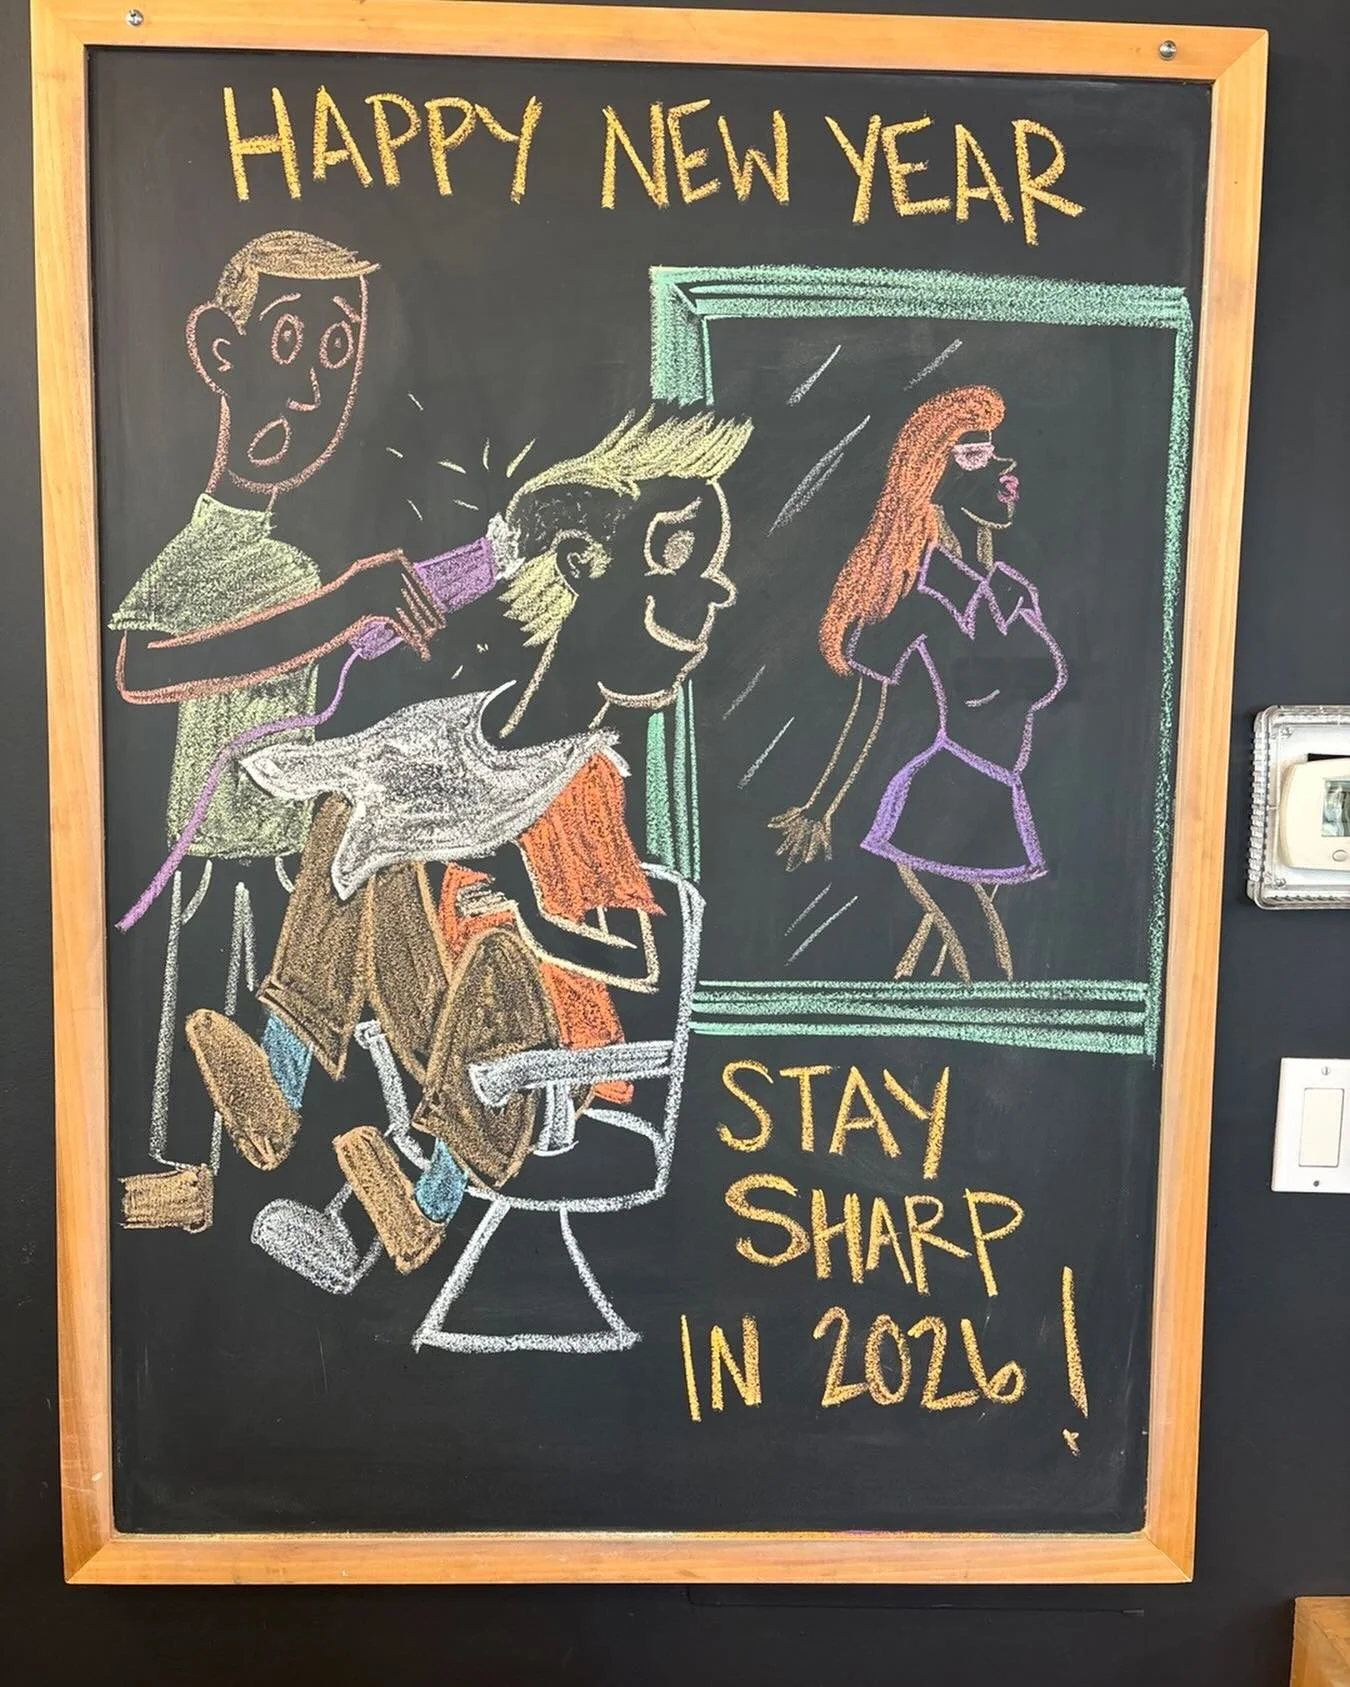 HAPPY NEW YEAR
STAY
SHARP
IN 2026!